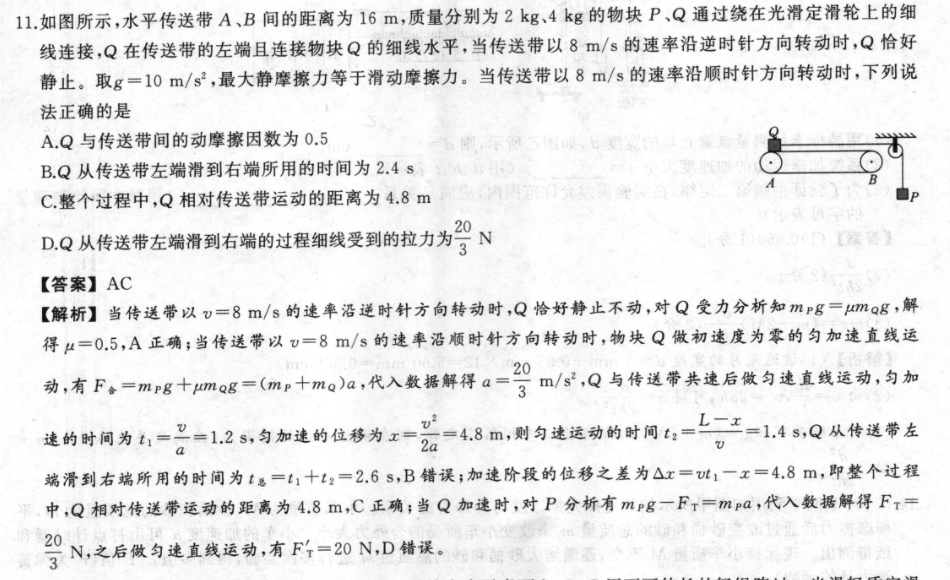 11.如图所示,水平传送带 A、B 间的距离为 16 m,质量分别为 2 kg、4 kg 的物块 P、Q 通过绕在光滑定滑轮上的细
线连接,Q 在传送带的左端且连接物块 Q 的细线水平,当传送带以 8 m/s 的速率沿逆时针方向转动时,Q 恰好
静止。取g=10 m/s²,最大静摩擦力等于滑动摩擦力。当传送带以 8 m/s 的速率沿顺时针方向转动时,下列说
法正确的是
A.Q 与传送带间的动摩擦因数为 0.5
B.Q 从传送带左端滑到右端所用的时间为 2.4 s
C.整个过程中,Q 相对传送带运动的距离为 4.8 m
D.Q 从传送带左端滑到右端的过程细线受到的拉力为20/3 N
Q
A
B
P
【答案】AC
【解析】当传送带以 v=8 m/s 的速率沿逆时针方向转动时,Q 恰好静止不动,对 Q 受力分析知 mPg=μmQg,解
得 μ=0.5,A 正确;当传送带以 v=8 m/s 的速率沿顺时针方向转动时,物块 Q 做初速度为零的匀加速直线运
动,有 F合=mPg+μmQg=(mP+mQ)a,代入数据解得 a=20/3 m/s²,Q 与传送带共速后做匀速直线运动,匀加
速的时间为 t₁=v/a=1.2 s,匀加速的位移为 x=v²/2a=4.8 m,则匀速运动的时间 t₂=(L-x)/v=1.4 s,Q 从传送带左
端滑到右端所用的时间为 t总=t₁+t₂=2.6 s,B 错误;加速阶段的位移之差为 Δx=vt₁-x=4.8 m,即整个过程
中,Q 相对传送带运动的距离为 4.8 m,C 正确;当 Q 加速时,对 P 分析有 mPg-FT=mPa,代入数据解得 FT=
20/3 N,之后做匀速直线运动,有 F′T=20 N,D 错误。